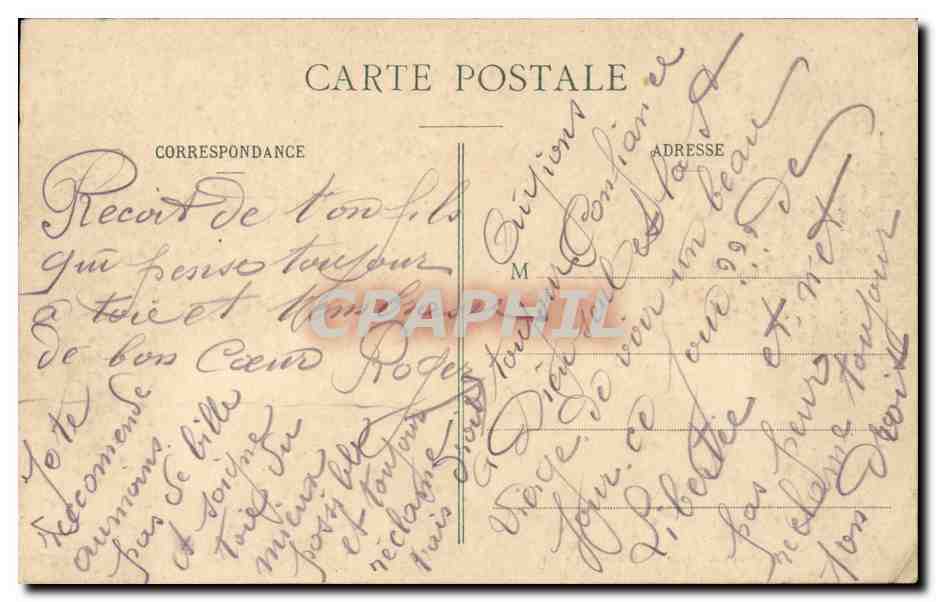 CARTE POSTALE
CORRESPONDANCE
ADRESSE
M
Recoit de ton fils
qui pense toujour
a toie et t'embrasse
de bon Cœur Roger
Je te
reccomende
aumoins
pas de bille
et soigne
toie du
mieux
possible
et toujours
réclame
Ayions
toujour Confiance
a Dieu et la St
Vierge de voir un beau
Jour ce jour??? De
Libertée et n'et
pas peur
reclame toujour
ton droit
CPAPHIL